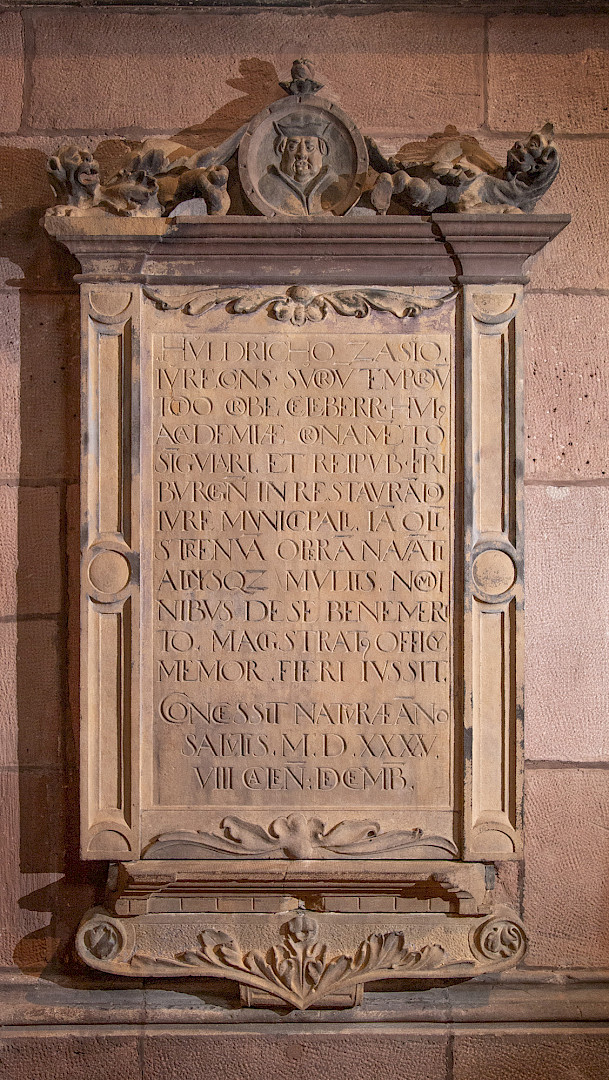 HVLDRICHO ZASIO,
IVRECONS · SVORV TEMPORV
TOTO ORBE CELEBERR · HVI9
ACADEMIÆ ORNAMETO
SIGVLARI, ET REIPVB · FRI
BVRGEN IN RESTAVRADO
IVRE MVNICIPALI, IA OLI
STRENVA OPERA NAVATI
ALIISQZ MVLTIS, NOMI
NIBVS DE SE BENEMERI
TO, MAGISTRAT9 OFFICII
MEMOR, FIERI IVSSIT,
CONCESSIT NATVRÆ ANO
SALVTIS, M. D. XXXV,
VIII CALEN, DECEMB,